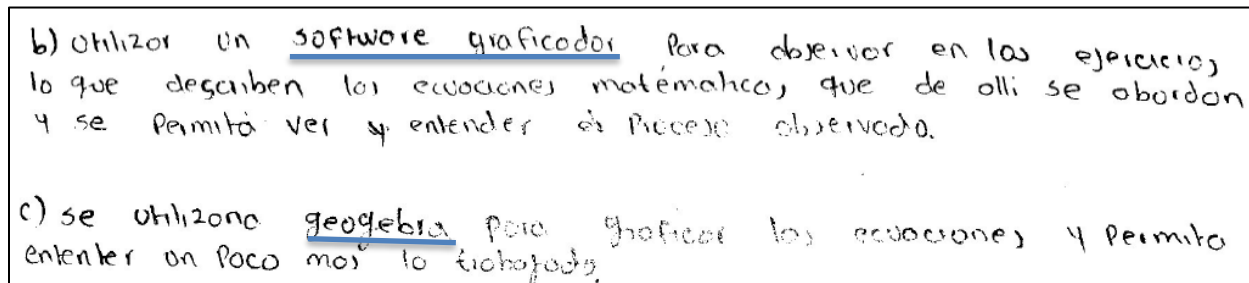 b) utilizar un software graficador para observar en los ejercicios
lo que describen las ecuaciones matématicas, que de alli se abordan
y se permita ver y entender el proceso observado.
c) se utilizaria geogebra para graficar las ecuaciones y permita
ententer un poco mas lo trabajado.